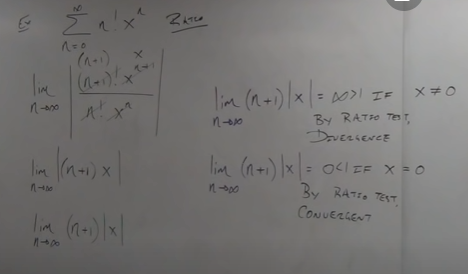 Ex ∞ Σ n=0 n! xⁿ Ratio
lim n→∞ | (n+1) x (n+1)! xⁿ⁺¹ / n! xⁿ |
lim n→∞ |(n+1) x|
lim n→∞ (n+1) |x|
lim n→∞ (n+1) |x| = ∞ > 1 IF x ≠ 0
BY RATIO TEST,
DIVERGENCE
lim n→∞ (n+1) |x| = 0 < 1 IF x = 0
BY RATIO TEST,
CONVERGENT